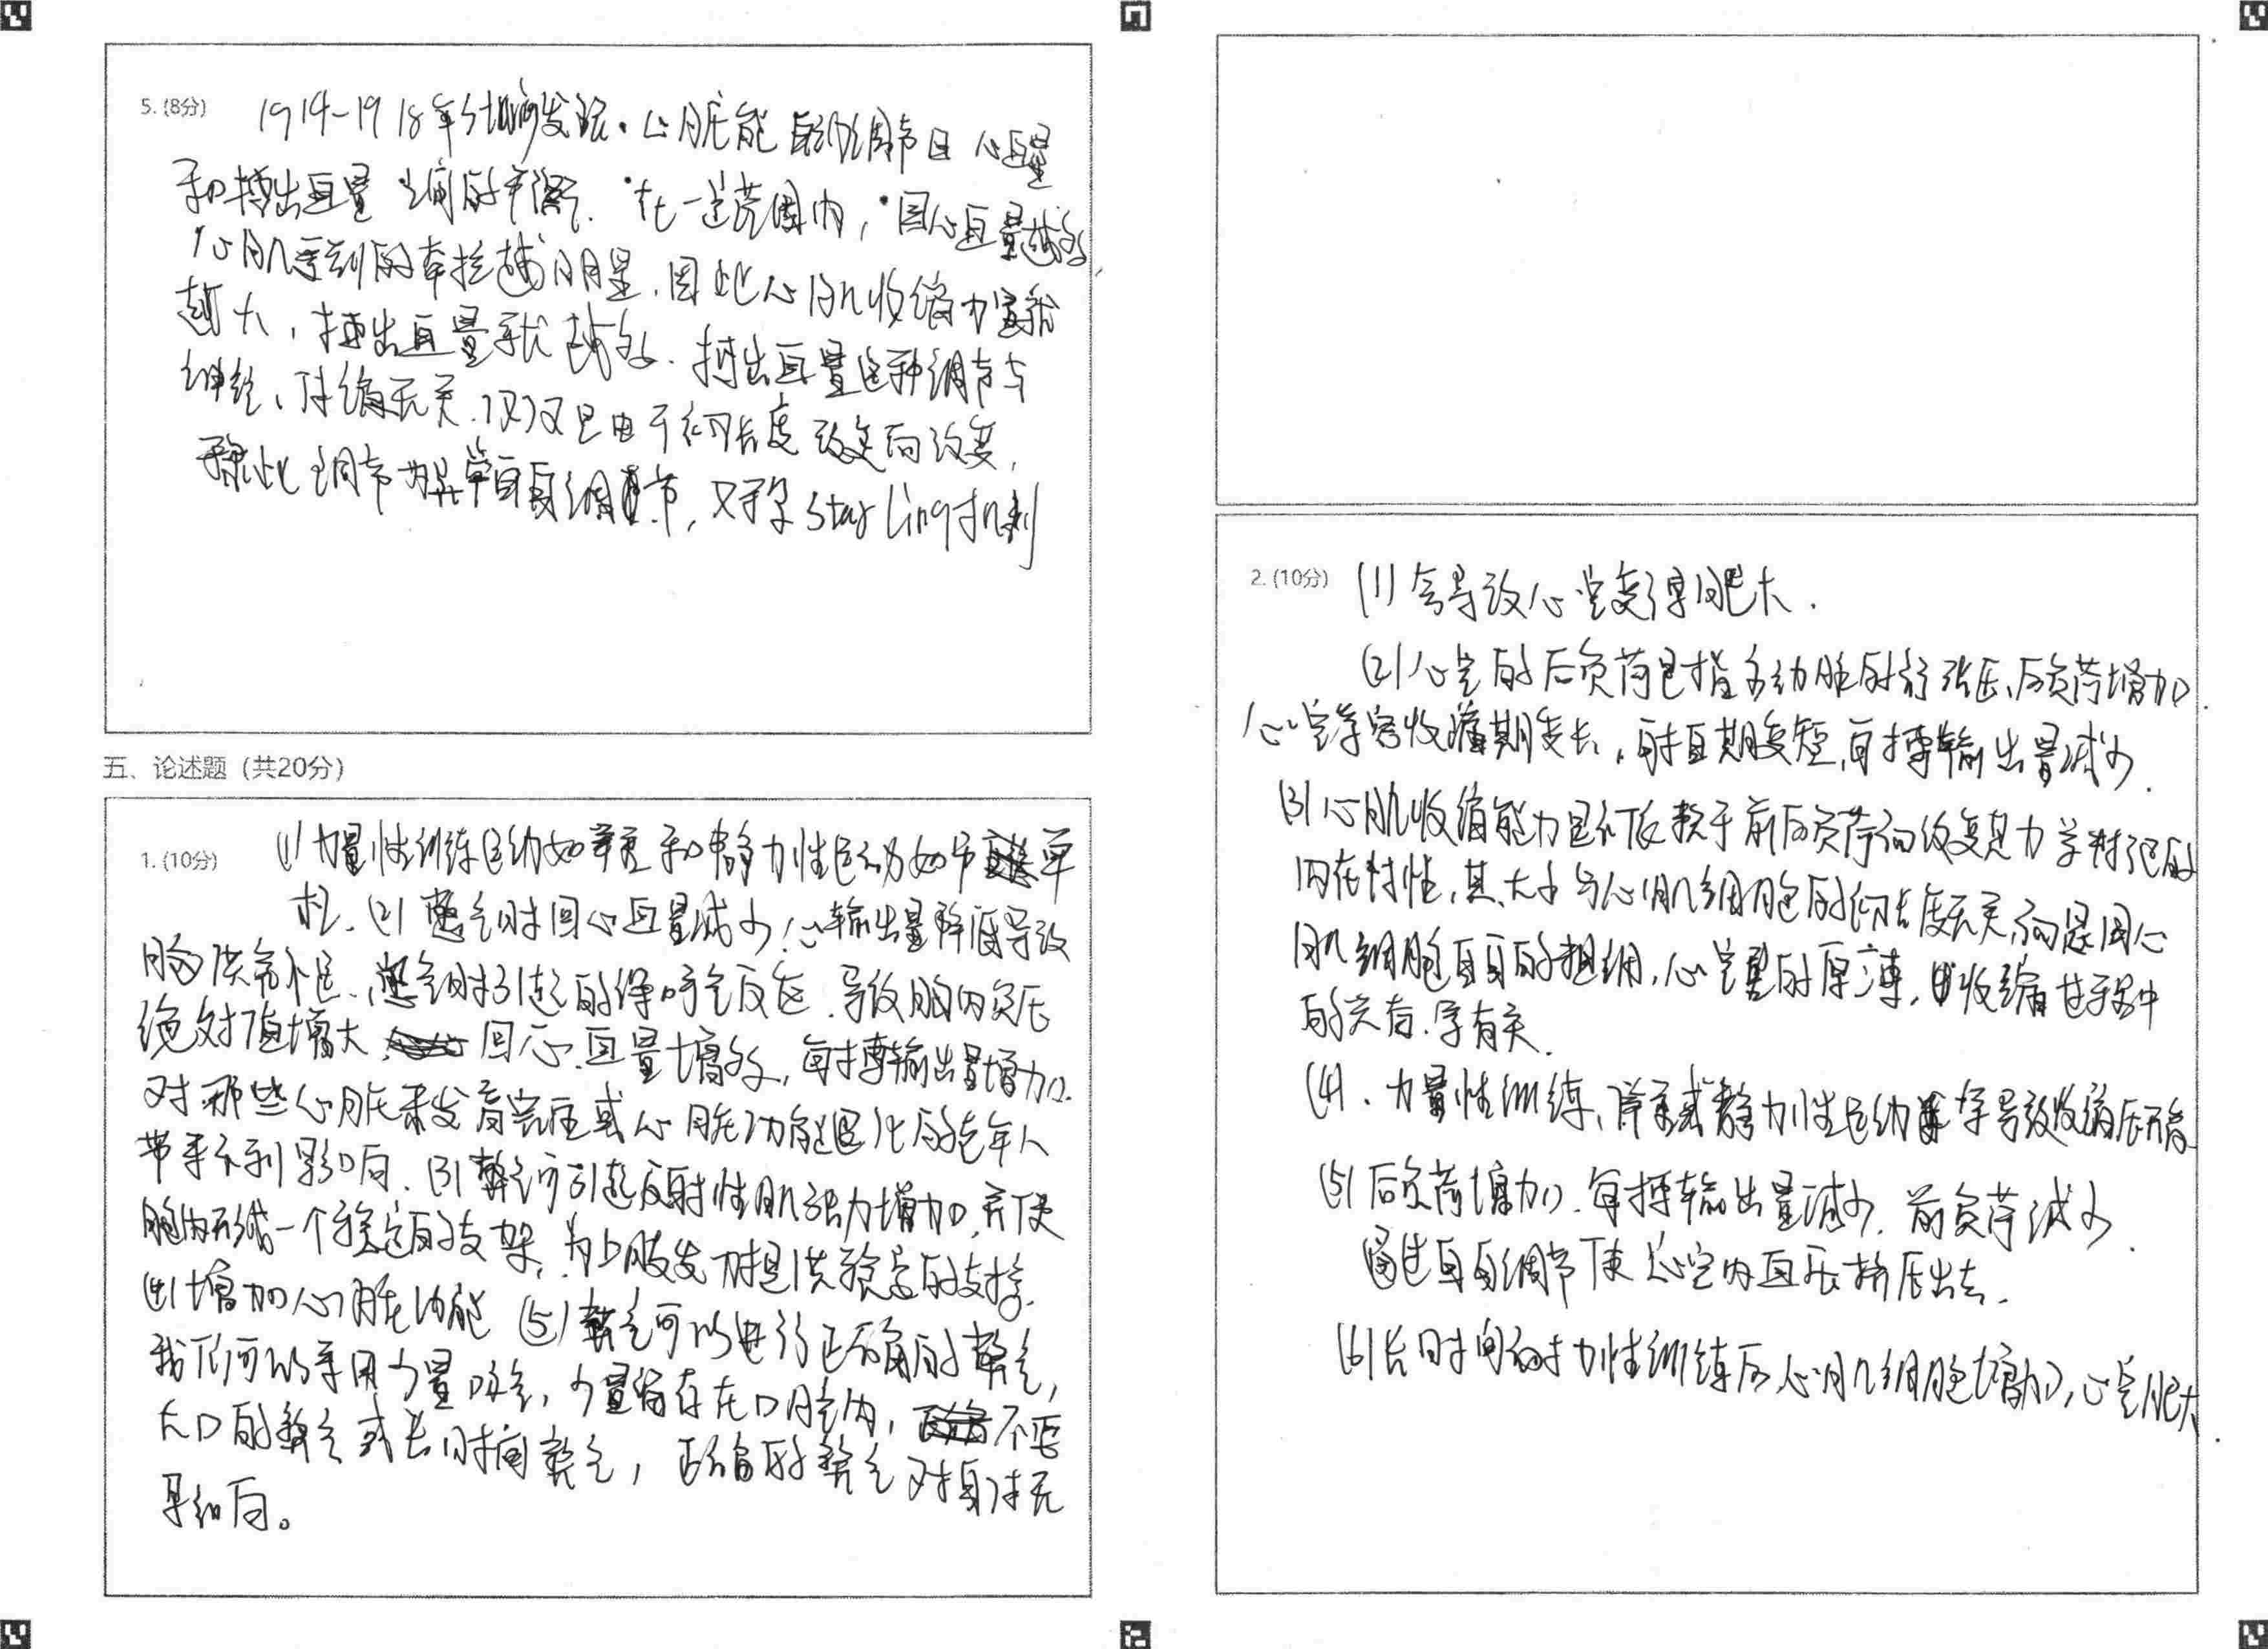 5. (8分) 1914-1918年 发现. 心脏能自动调节回心血量
和搏出血量之间的平衡. 在一定范围内, 回心血量越多
心肌受到的牵拉越明显. 因此心肌收缩力
越大, 搏出血量就越多. 搏出血量这种调节与
神经、体液无关. 仅仅是由于初长度改变而改变,
称此调节为异常自身调节, 又称 Starling机制
五、论述题 (共20分)
1. (10分) (1) 力量性训练运动如举重和静力性运动如吊单
杠. (2) 憋气时回心血量减少, 心输出量降低导致
脑供氧不足. 憋气时引起的 呼气反应. 导致胸内负压
绝对值增大, 回心血量增多, 每搏输出量增加.
对那些心脏未发育完全或心脏功能退化的老年人
带来不利影响. (3) 憋气可引起反射性肌张力增加, 并使
胸内形成一个稳定的支架, 为上肢发力提供稳定的支撑.
(4) 增加心脏功能 (5) 憋气可以进行正确的憋气,
我们可以采用少量吸气, 少量储存在口腔内, 不要
大口的憋气或长时间憋气, 正确的憋气对身体无
影响。
2. (10分) (1) 会导致心室变厚肥大.
(2) 心室的后负荷是指主动脉的舒张压. 后负荷增加
心室等容收缩期变长, 射血期变短, 每搏输出量减少.
(3) 心肌收缩能力是不依赖于前后负荷而改变其力学 的
内在特性, 其大小与心肌细胞的初长度无关, 而是因心
肌细胞自身的粗细, 心室壁的厚薄, 收缩
的 有关.
(4). 力量性训练, 举重或静力性运动 导致收缩压
(5) 后负荷增加. 每搏输出量减少. 前负荷减少.
通过自身调节使心室内血压挤压出去.
(6) 长时间的 力性训练后心肌细胞增加, 心室肥大